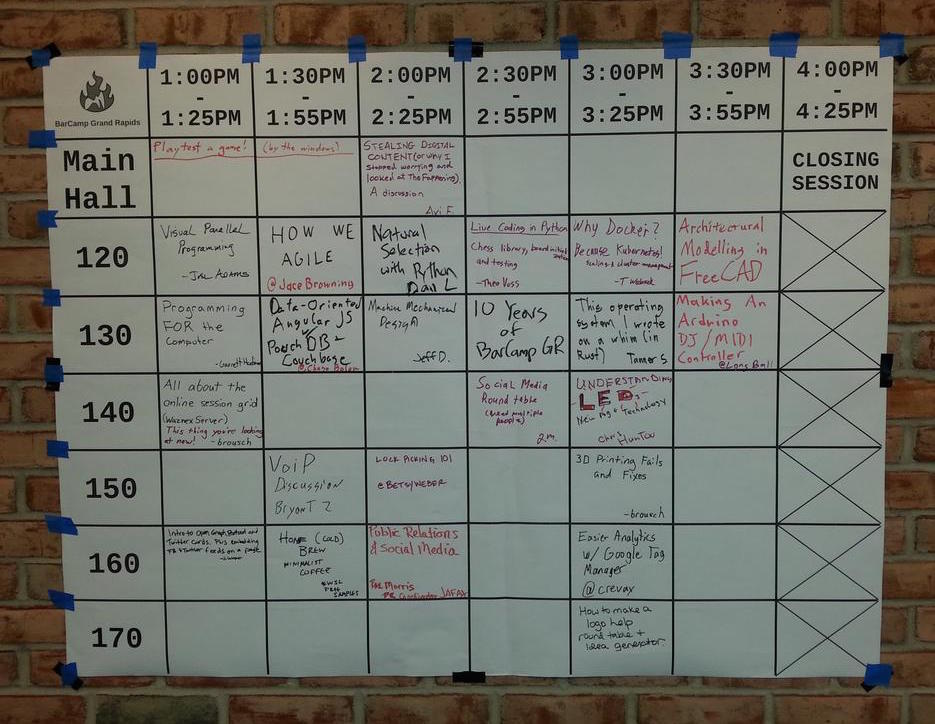 BarCamp Grand Rapids
1:00PM
-
1:25PM
1:30PM
-
1:55PM
2:00PM
-
2:25PM
2:30PM
-
2:55PM
3:00PM
-
3:25PM
3:30PM
-
3:55PM
4:00PM
-
4:25PM
Main
Hall
Playtest a game!
(by the windows)
STEALING DIGITAL
CONTENT (or why I
stopped worrying and
looked at The Fappening).
A discussion
Avi F.
CLOSING
SESSION
120
Visual Parallel
Programming
ADAMS
HOW WE
AGILE
@Jace Browning
Natural
Selection
with Python
Dan L
Live Coding in Python
Chess library,
and testing
-Theo Voss
Why Docker?
Because Kubernetes!
Architectural
Modelling in
FreeCAD
130
Programming
FOR the
Computer
-Garrett
Data-Oriented
Angular JS
PouchDB-
Couchbase
@Chase
Machine Mechanical
Design
Jeff D.
10 Years
of
BarCamp GR
This operating
system I wrote
on a whim (in
Rust)
Tamer S
Making An
Arduino
DJ/MIDI
Controller
140
All about the
online session grid
(Waznex Server)
This thing you're looking
at now! -brousch
Social Media
Round table
(need multiple
people)
UNDERSTANDING
LEDs
New Technology
Chris
150
VoiP
Discussion
Bryant Z
LOCK PICKING 101
@BETSYWEBER
3D Printing Fails
and Fixes
-brousch
160
Intro to Open Graph, and
Twitter Cards. Plus embedding
FB & Twitter feeds on a page
HOME (COLD)
BREW
MINIMALIST
COFFEE
FREE
SAMPLES
Public Relations
& Social Media
Morris
PR Coordinator JAFAX
Easier Analytics
w/ Google Tag
Manager
@crevax
170
How to make a
logo help
round table +
idea generator.